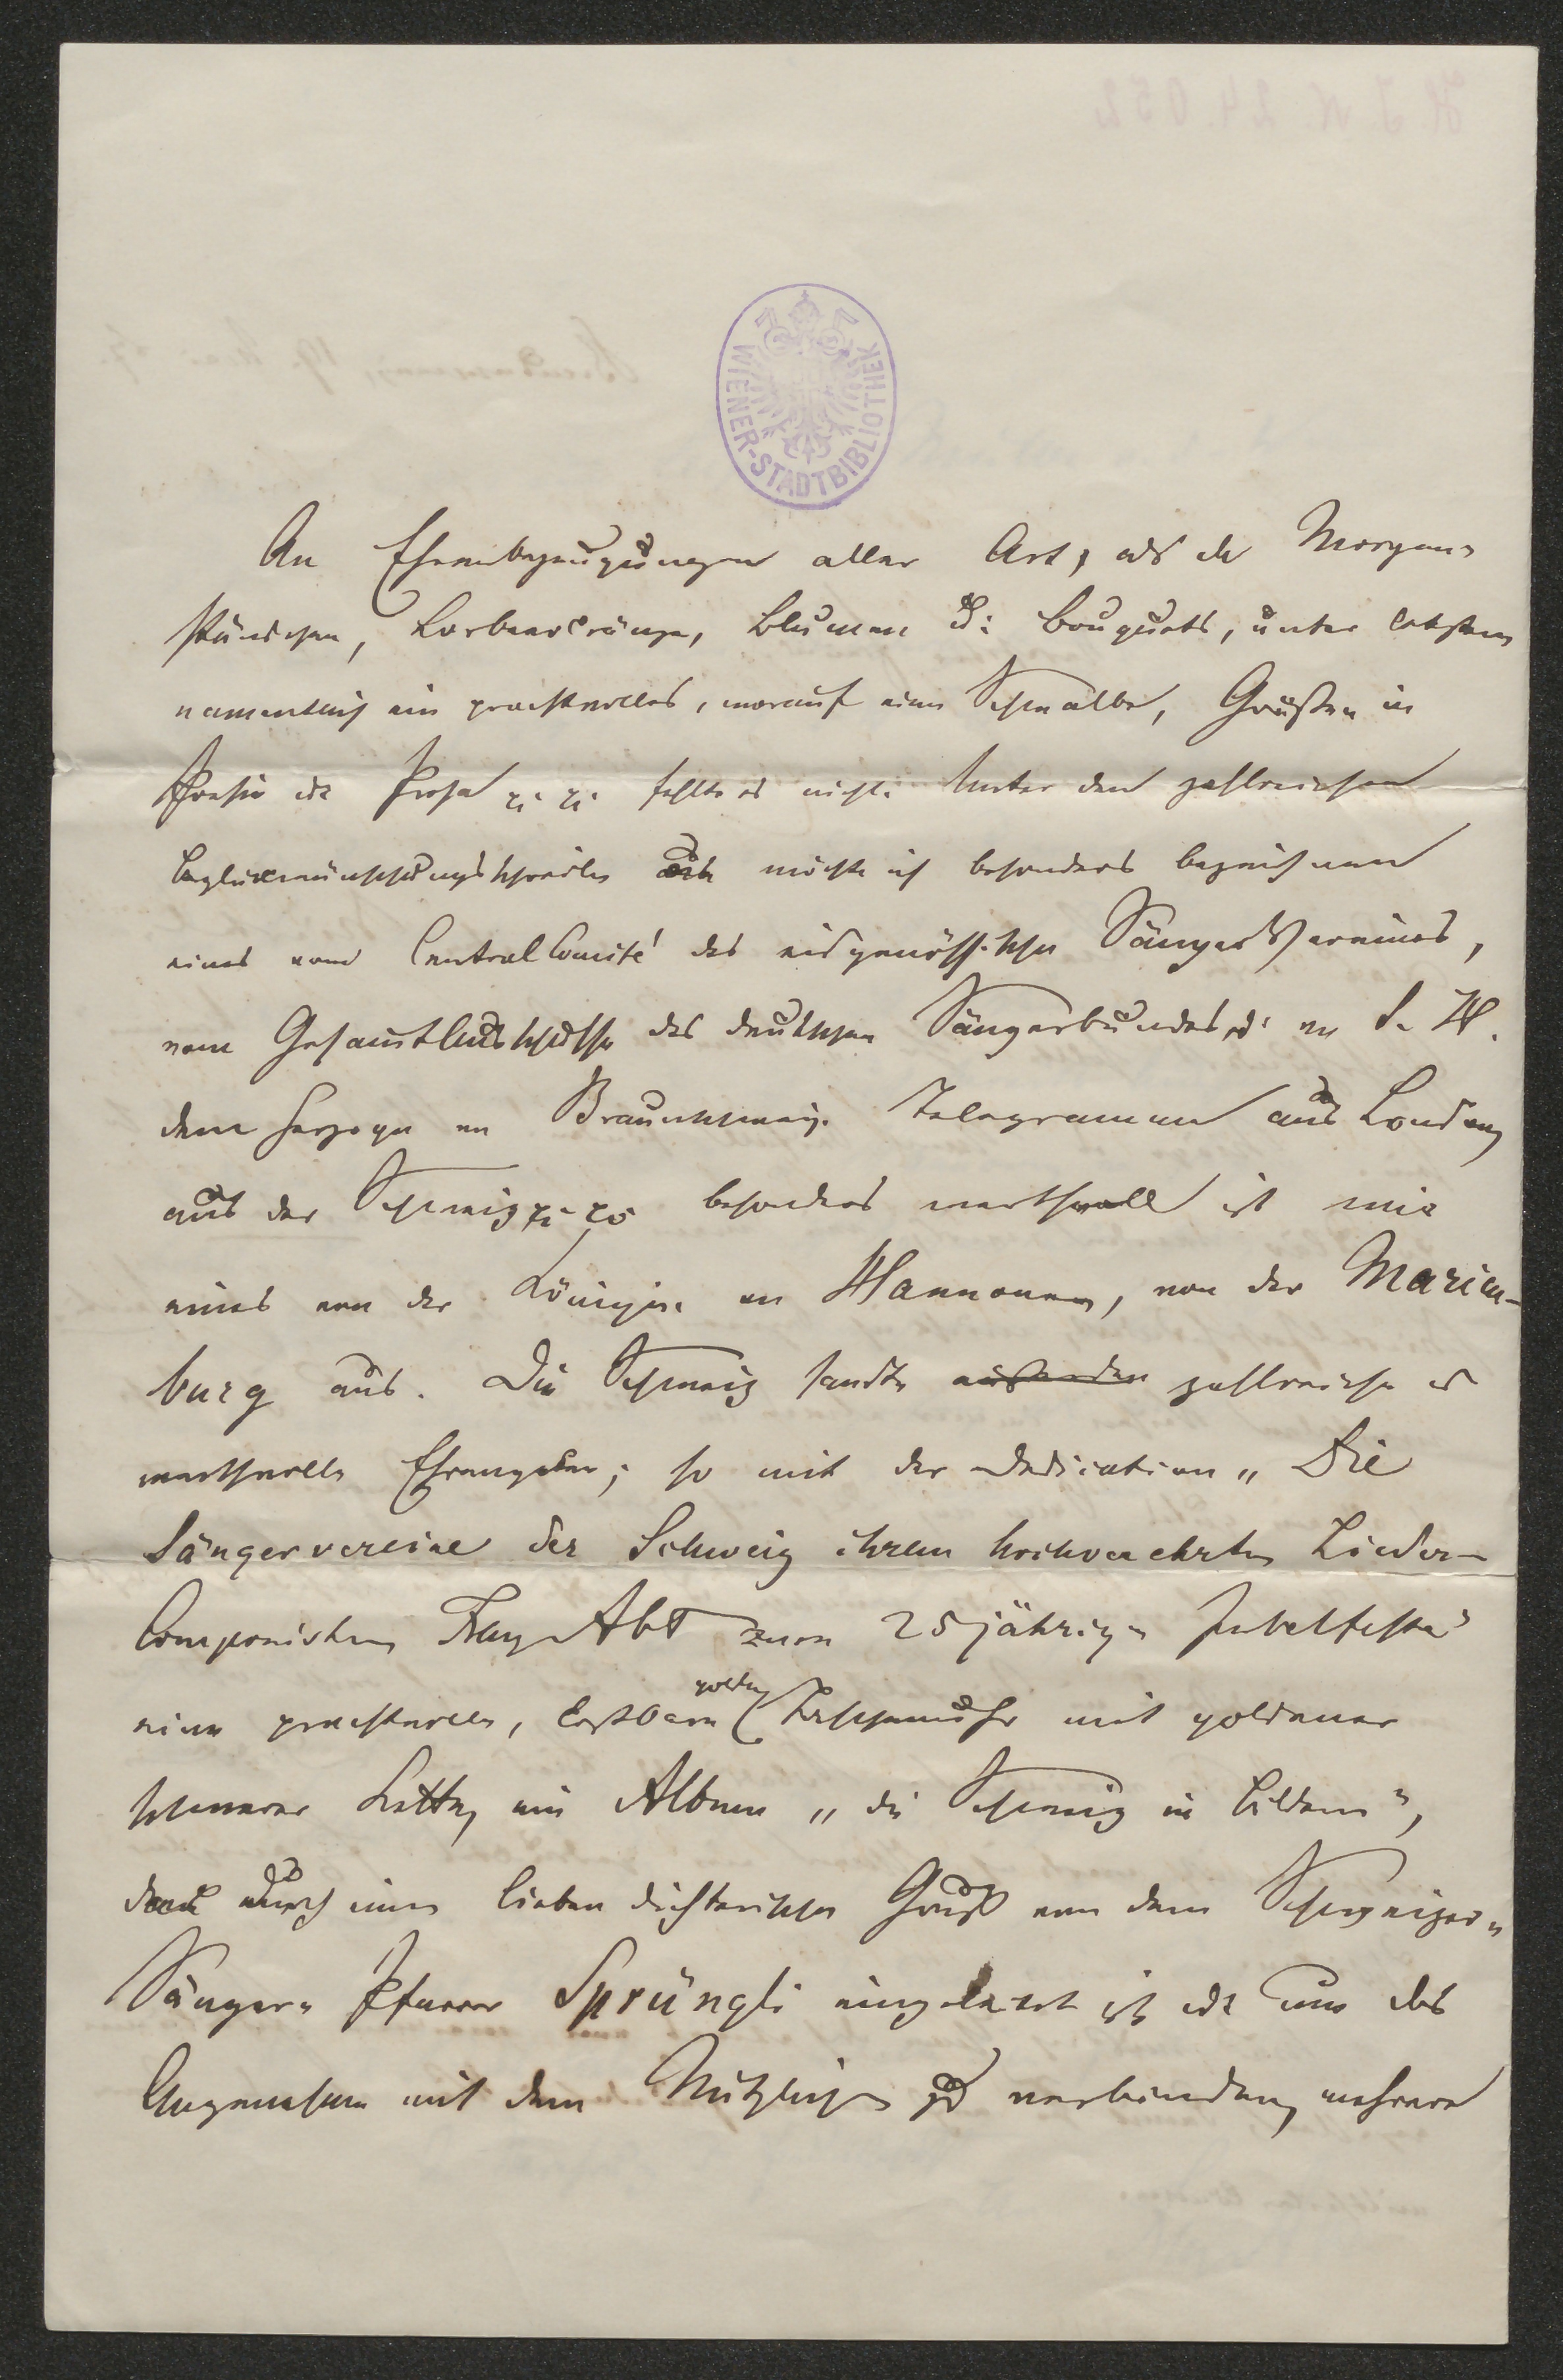 WIENER-STADTBIBLIOTHEK
An Ehrenbezeugungen aller Art, als da Morgen-
ständchen, Lorbeerkränze, Blumen u: Bouquets, unter letztern
namentlich ein prachtvolles, worauf eine Schwalbe, Grüßen in
Poesie u Prosa fehlte es nicht. Unter den zahlreichen
Beglückwünschungsschreiben möchte ich besonders bezeichnen
eines vom Central Comité des eidgenössischen Sänger Vereines,
vom Gesamtausschusse des deutschen Sängerbundes, u: v S. H.
dem Herzoge v Braunschweig. Telegramme aus London,
aus der Schweiz besonders werthvoll ist mir
eines von der Königin v Hannover, von der Marien-
burg aus. Die Schweiz sandte außerdem zahlreiche u
werthvolle Ehrengaben; so mit der Dedication „Die
Sängervereine der Schweiz ihrem hochverehrten Lieder-
Componisten Franz Abt zum 25jährigen Jubelfeste"
eine prachtvolle, kostbare goldne Taschenuhr mit goldener
schwerer Kette, ein Album „die Schweiz in Bildern",
durch einen lieben dichterischen Gruß von dem Schweizer-
Sänger- Pfarrer Sprüngli eingeleitet ist u um das
Angenehme mit dem Nützlichen zu verbinden, mehrere